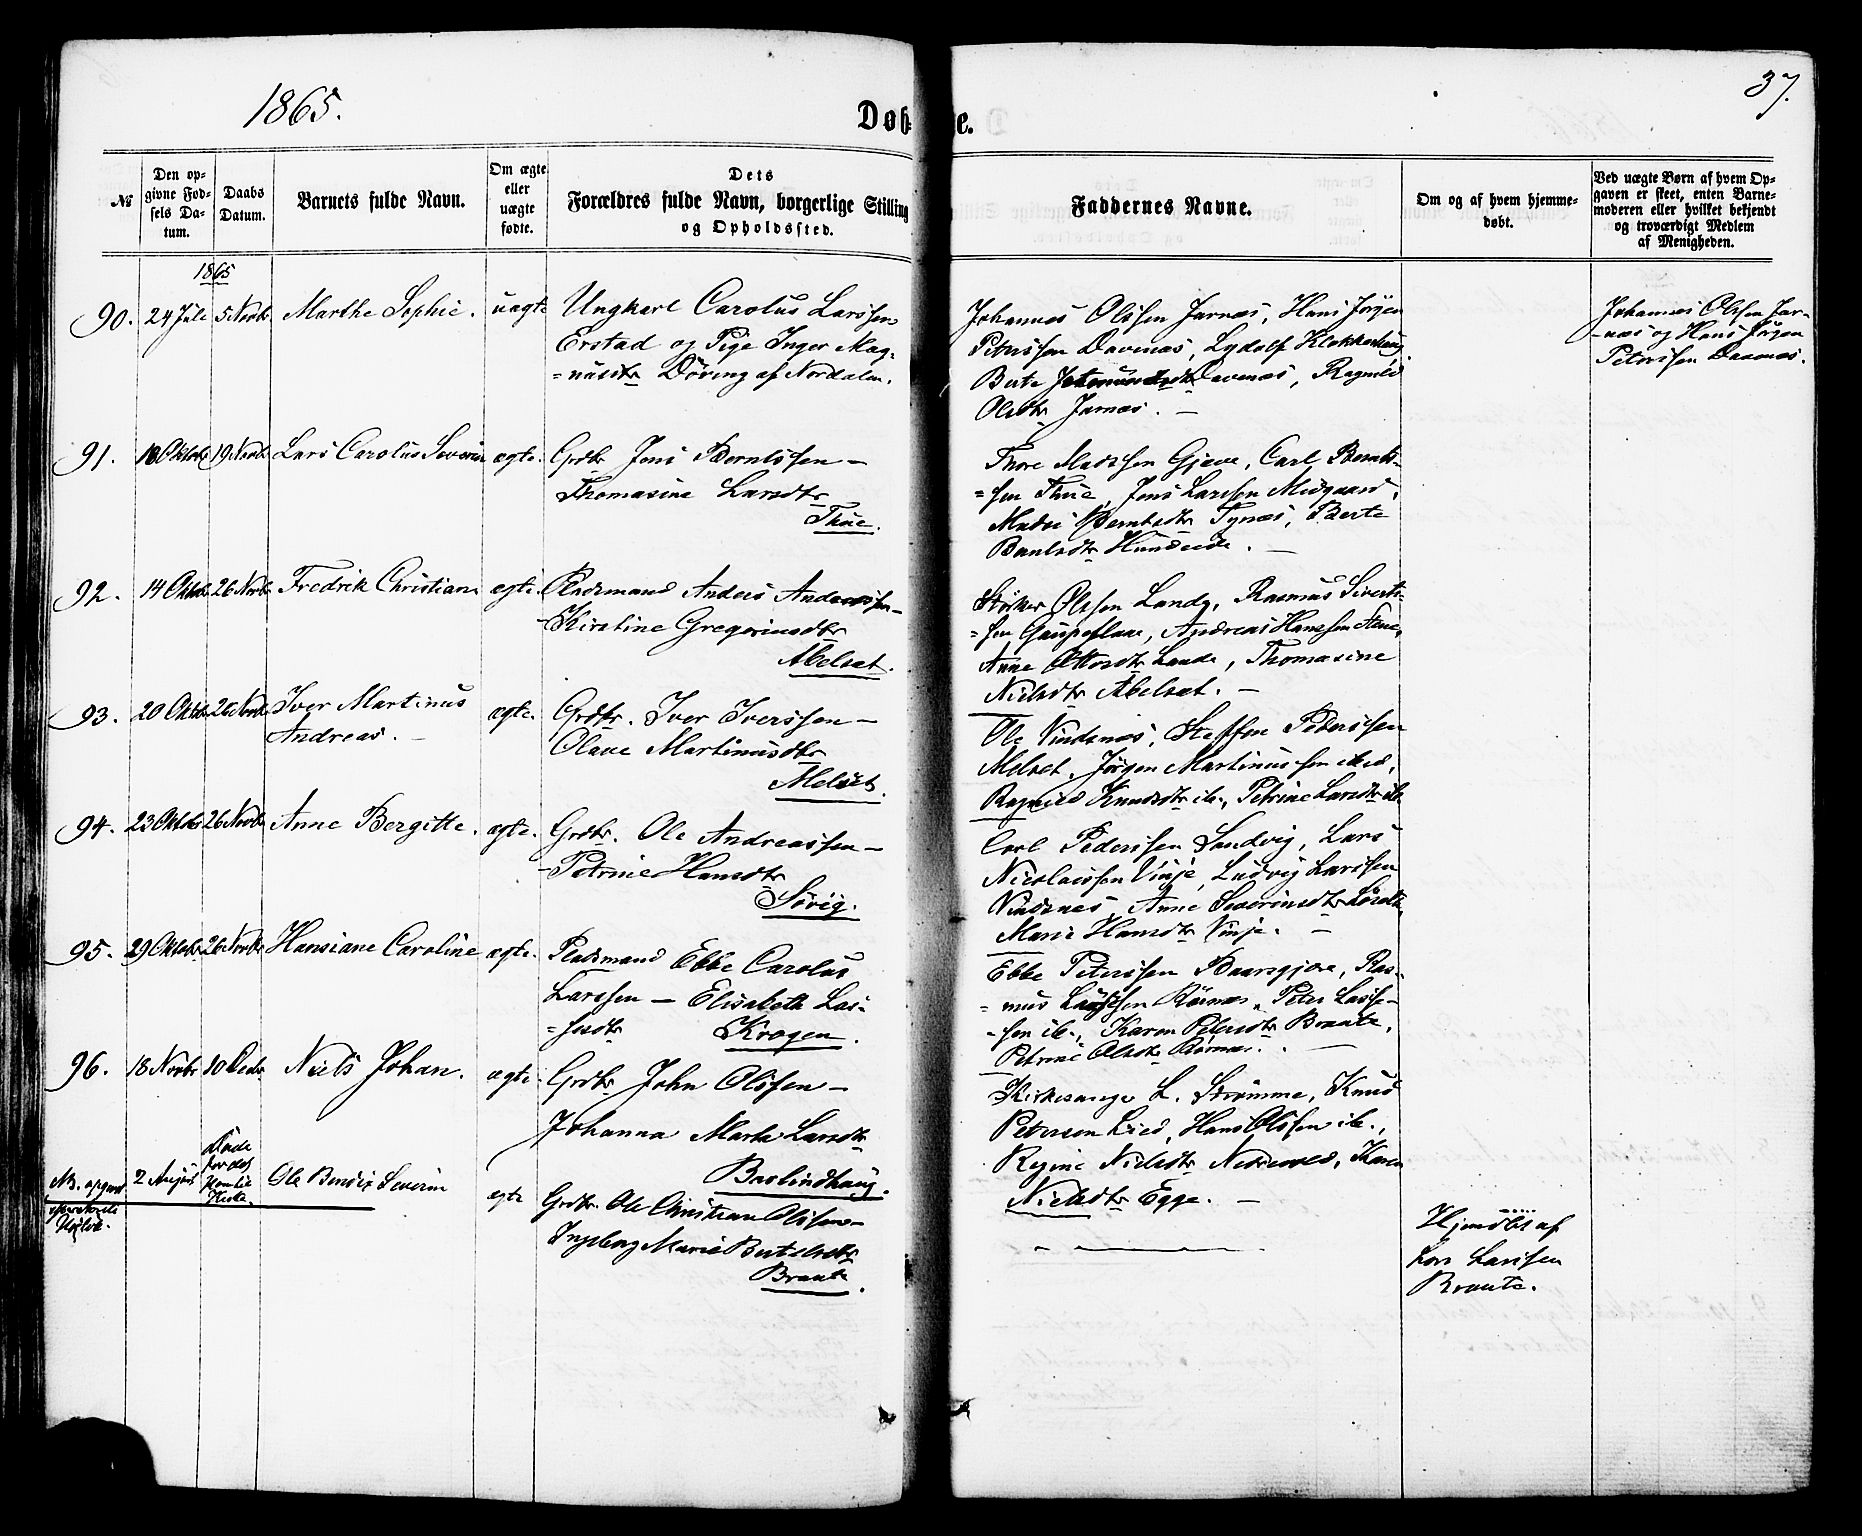 1865.
37.
Døb-
e.
№
Den op-
givne Fød-
sels Da-
tum.
Daabs
Datum.
Barnets fulde Navn.
Om ægte
eller
uægte
fødte.
Dets
Forældres fulde Navn, borgerlige Stilling
og Opholdssted.
Faddernes Navne.
Om og af hvem hjemme-
døbt.
Ved uægte Børn af hvem Op-
gaven er skeet, enten Barne-
moderen eller hvilket bekjendt
og troværdigt Medlem
af Menigheden.
1865
90. 24 Juli 5 Novbr Marthe Sophie. uægte
Ungkarl Carolus Larssen
Erstad og Pige Inger Mag-
=nusdtr Døving af Nordalen.
Johannes Olssen Jarnæs, Hans Jørgen
Peterssen Davenæs, Lydolf Klokkerhaug
Berte Davenæs, Ragnild
Olsdtr Jarnæs. —
Johannes Olssen Jar-
næs og Hans Jørgen
Peterssen Davnæs.
91. 18 Oktobr 19 Novbr Lars Carolus Severin ægte.
Grdbr Jens Berntssen —
Thomasine Larsdtr
Thue.
Thore Madssen Gjære, Carl Bernt-
=sen Thue, Jens Larssen Midgaard,
Madsi Berntsdtr Tynæs, Berte
Bentsdtr Hundeide. —
92. 14 Oktobr 26 Novbr Fredrik Christian ægte.
Pladsmand Anders Anderssen —
Kirstine Gregoriusdtr
Abelset.
Støther Olssen Lande, Rasmus Siverts-
=sen Gaupeflaae, Andreas Hanssen Stene,
Anne Ottosdtr Lande, Thomasine
Nielsdtr Abelset. —
93. 20 Oktobr 26 Novbr Iver Martinus
Andreas. — ægte.
Grdbr. Iver Iverssen —
Olave Martinusdtr
Melset.
Ole Vindsnæs, Steffen Pederssen
Melset, Jørgen Martinussen ibid,
Ragnild Knudsdtr ib., Petrine Larsdtr ib
94. 23 Oktobr 26 Novbr Anne Bergitte. ægte.
Grdbr. Ole Andreassen —
Petrine Hansdtr
Søvig.
Carl Pederssen Sandvig, Lars
Nicolaissen Vinje, Ludvig Larssen
Vindsnes, Anne Severinsdtr
Marie Hansdtr Vinje. —
95. 29 Oktobr 26 Novbr Hansiane Caroline ægte.
Pladsmand Ebbe Carolus
Larssen — Elisabeth Las-
=sesdtr Krogen.
Ebbe Peterssen Baarsgjore, Ras-
=mus Lassesen Rørnæs, Peter Lasse-
=sen ib., Karen Petersdtr Brante,
Petrine Olsdtr Rørnæs. —
96. 18 Novbr 10 Decbr Niels Johan. ægte.
Grdbr John Olssen —
Johanna Marta Larsdtr
Barlindhaug.
Kirkesanger L. Strømme, Knud
Petersen Lied, Hans Olssen ib.,
Regine Nielsdtr Nedrevold, Karen
Nielsdtr Egge. —
NB. 2 August
Døde
før det
kom til
Kirke.
Ole Bendix Severin ægte
Grdbr. Ole Christian Olssen —
Ingeborg Marie Bertelsdtr
Brante.
Hjemdbt af
Lars Larssen
Brante.